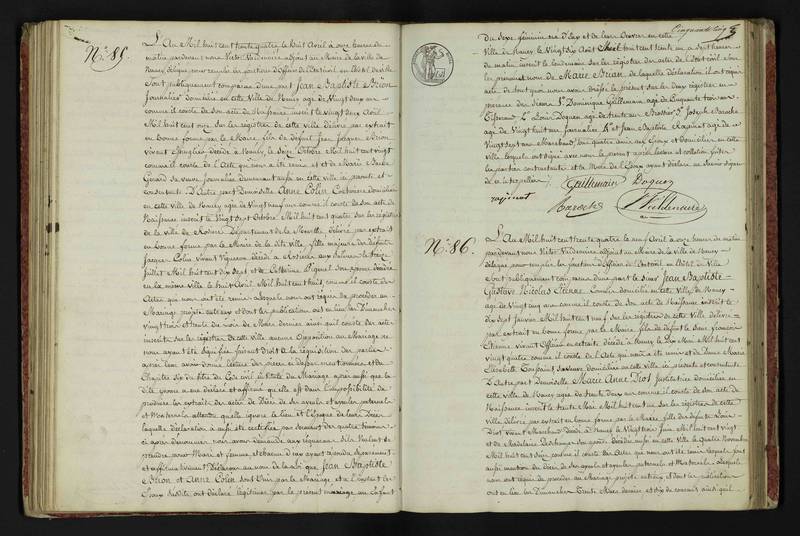 N.° 85.
L'An Mil huit cent trente quatre, le huit Avril à onze heures du
matin pardevant nous Victor Valdenaire adjoint au Maire de la ville de
Nancy délégué pour remplir les fonctions d'Officier de l'Etat civil en l'hôtel de ville
sont publiquement comparus d'une part Jean Baptiste Brion
Journalier domicilié en cette Ville de Nancy âgé de Vingt deux ans
comme il conste de son acte de Naissance inscrit le vingt deux Avril
Mil huit cent sur les registres de cette ville délivré par extrait
en bonne forme par le Maire, fils de défunt Jean Brion
vivant décédé à Nancy, le Onze Octobre Mil huit cent vingt
comme il conste de l'Acte qui nous a été remis et de Marie Barbe
Gérard sa veuve, Journalière demeurant aussi en cette ville ici présente et
consentante D'Autre part Demoiselle Anne Colin Couturière domiciliée
en cette ville de Nancy âgée de Vingt neuf ans comme il conste de son acte de
Naissance inscrit le vingt sept Octobre Mil huit cent quatre sur les registres
de la ville de Rosières Département de la Meurthe, délivré par extrait
en bonne forme par le Maire de la dite ville, fille majeure des défunts
Jacques Colin vivant Vigneron décédé à Rosières aux Salines le treize
Juillet Mil huit cent dix sept et de Catherine son épouse décédée
en la même ville le huit Avril Mil huit cent huit, comme il conste des
Actes qui nous ont été remis Lesquels nous ont requis de procéder au
Mariage projetté entr'eux et dont les publications ont eu lieu les Dimanches
vingt trois et trente du mois de Mars dernier ainsi qu'il conste des actes
inscrits sur les registres de cette ville aucune opposition au Mariage ne
nous ayant été signifiée faisant droit à la réquisition des parties
après leur avoir donné lecture des pièces ci dessus mentionnées et du
Chapitre six du titre du Code civil intitulé du Mariage après aussi que la
dite épouse a eu déclaré et affirmé qu'elle est dans l'impossibilité de
produire les extraits des actes de Décès de ses ayeuls et ayeules paternels
et Maternels attendu qu'elle ignore le lieu et l'époque de leurs Décès
laquelle déclaration a aussi été certifiée par serment des quatre témoins
ci après dénommés nous avons demandé aux requérans s'ils veulent se
prendre pour Mari et femme, et chacun d'eux ayant répondu séparément
et affirmativement Déclarons au nom de la Loi que Jean Baptiste
Brion et Anne Colin sont Unis par le Mariage et à l'instant les
Epoux susdits ont déclaré légitimer par le présent mariage un Enfant
Cinquante cinq
du sexe féminin né d'eux et de leurs œuvres en cette
Ville de Nancy le Vingt six Août Mil huit cent trente un à sept heures
du matin inscrit le lendemain sur les registres des actes de l'Etat civil sous
les prénoms et nom de Marie Brion de laquelle déclaration il ont requis
acte. De tout quoi nous avons dressé le présent sur les deux registres en
présence des Sieurs 1.° Dominique Guillemain âgé de Cinquante trois ans
2.° Louis Doquez âgé de trente un 3.° Joseph Baroche
âgé de Vingt huit ans Journaliers 4.° et Jean Baptiste Raginot âgé de
Vingt sept ans Marchand, tous quatre amis aux Epoux et domiciliés en cette
ville lesquels ont signé avec nous le présent après lecture et collation faites
les parties contractantes et la Mère de l'Epoux ayant déclaré ne savoir signer
de ce interpellés.
Guillemain Doquez
raginot
Baroche VValdenaire
N.° 86.
L'An Mil huit cent trente quatre le neuf Avril à onze heures du matin
pardevant nous Victor Valdenaire adjoint au Maire de la ville de Nancy
délégué pour remplir les fonctions d'Officier de l'Etat civil en l'hôtel de Ville
sont publiquement comparus d'une part le Sieur Jean Baptiste
Gustave Nicolas Etienne Commis domicilié en cette Ville de Nancy
âgé de Vingt cinq ans comme il conste de son acte de Naissance inscrit le
dix sept Janvier Mil huit cent neuf sur les registres de cette Ville délivré
par extrait en bonne forme par le Maire, fils de défunt le Sieur François
Etienne vivant Officier en retraite décédé à Nancy le Dix Mars Mil huit cent
vingt quatre comme il conste de l'Acte qui nous a été remis et de Dame Marie
Elisabeth sa veuve domiciliée en cette Ville ici présente et consentante
D'Autre part Demoiselle Marie Anne Diot domiciliée en
cette ville de Nancy âgée de trente deux ans comme il conste de son acte de
Naissance inscrit le trente Mars Mil huit cent deux sur les registres de cette
Ville délivré par extrait en bonne forme par le Maire, fille des défunts Sieur
Diot vivant Marchand décédé à Nancy le Vingt trois Juin Mil huit cent vingt
et de Madelaine son épouse décédée aussi en cette Ville le Quatre Novembre
Mil huit cent onze comme il conste des Actes qui nous ont été remis lesquels font
aussi mention du Décès de ses ayeuls et ayeules paternels et Maternels. Lesquels
nous ont requis de procéder au Mariage projetté entr'eux et dont les publications
ont eu lieu les Dimanches Trente Mars dernier et six du courant ainsi qu'il